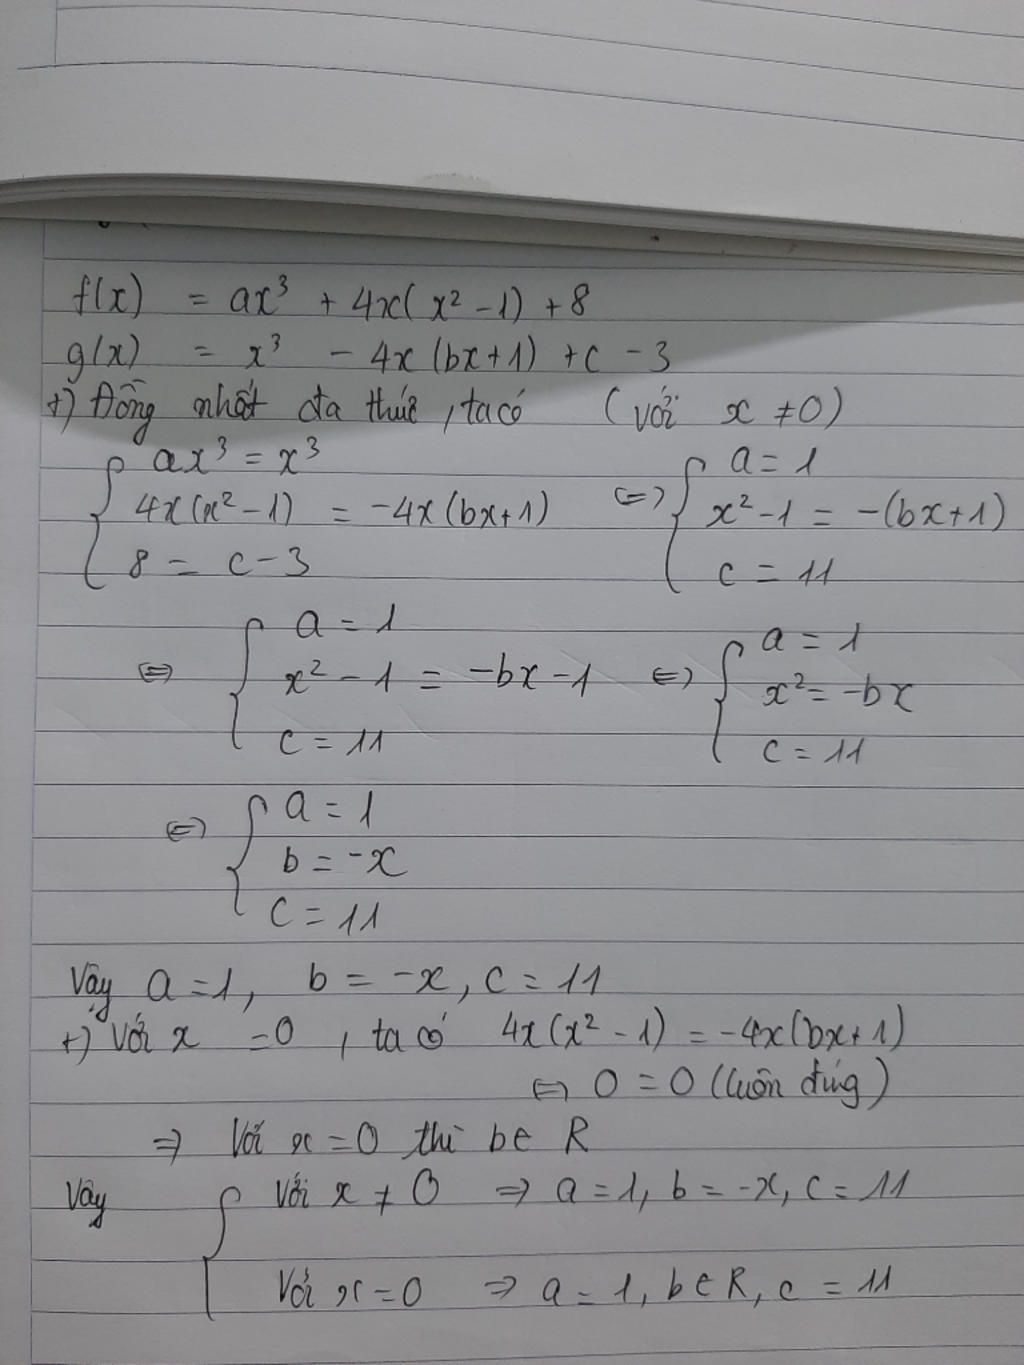 f(x) = ax³ + 4x(x² - 1) + 8
g(x) = x³ - 4x(bx+1) + c - 3
+) Đồng nhất đa thức, ta có (với x ≠ 0)
{ ax³ = x³ ⇔ { a = 1
4x(x² - 1) = -4x(bx+1) x² - 1 = -(bx+1)
8 = c - 3 c = 11
⇔ { a = 1 ⇔ { a = 1
x² - 1 = -bx - 1 x² = -bx
c = 11 c = 11
⇔ { a = 1
b = -x
c = 11
Vậy a = 1, b = -x, c = 11
+) Với x = 0, ta có 4x(x² - 1) = -4x(bx+1)
⇔ 0 = 0 (luôn đúng)
⇒ Với x = 0 thì b ∈ R
Vậy { Với x ≠ 0 ⇒ a = 1, b = -x, c = 11
Với x = 0 ⇒ a = 1, b ∈ R, c = 11